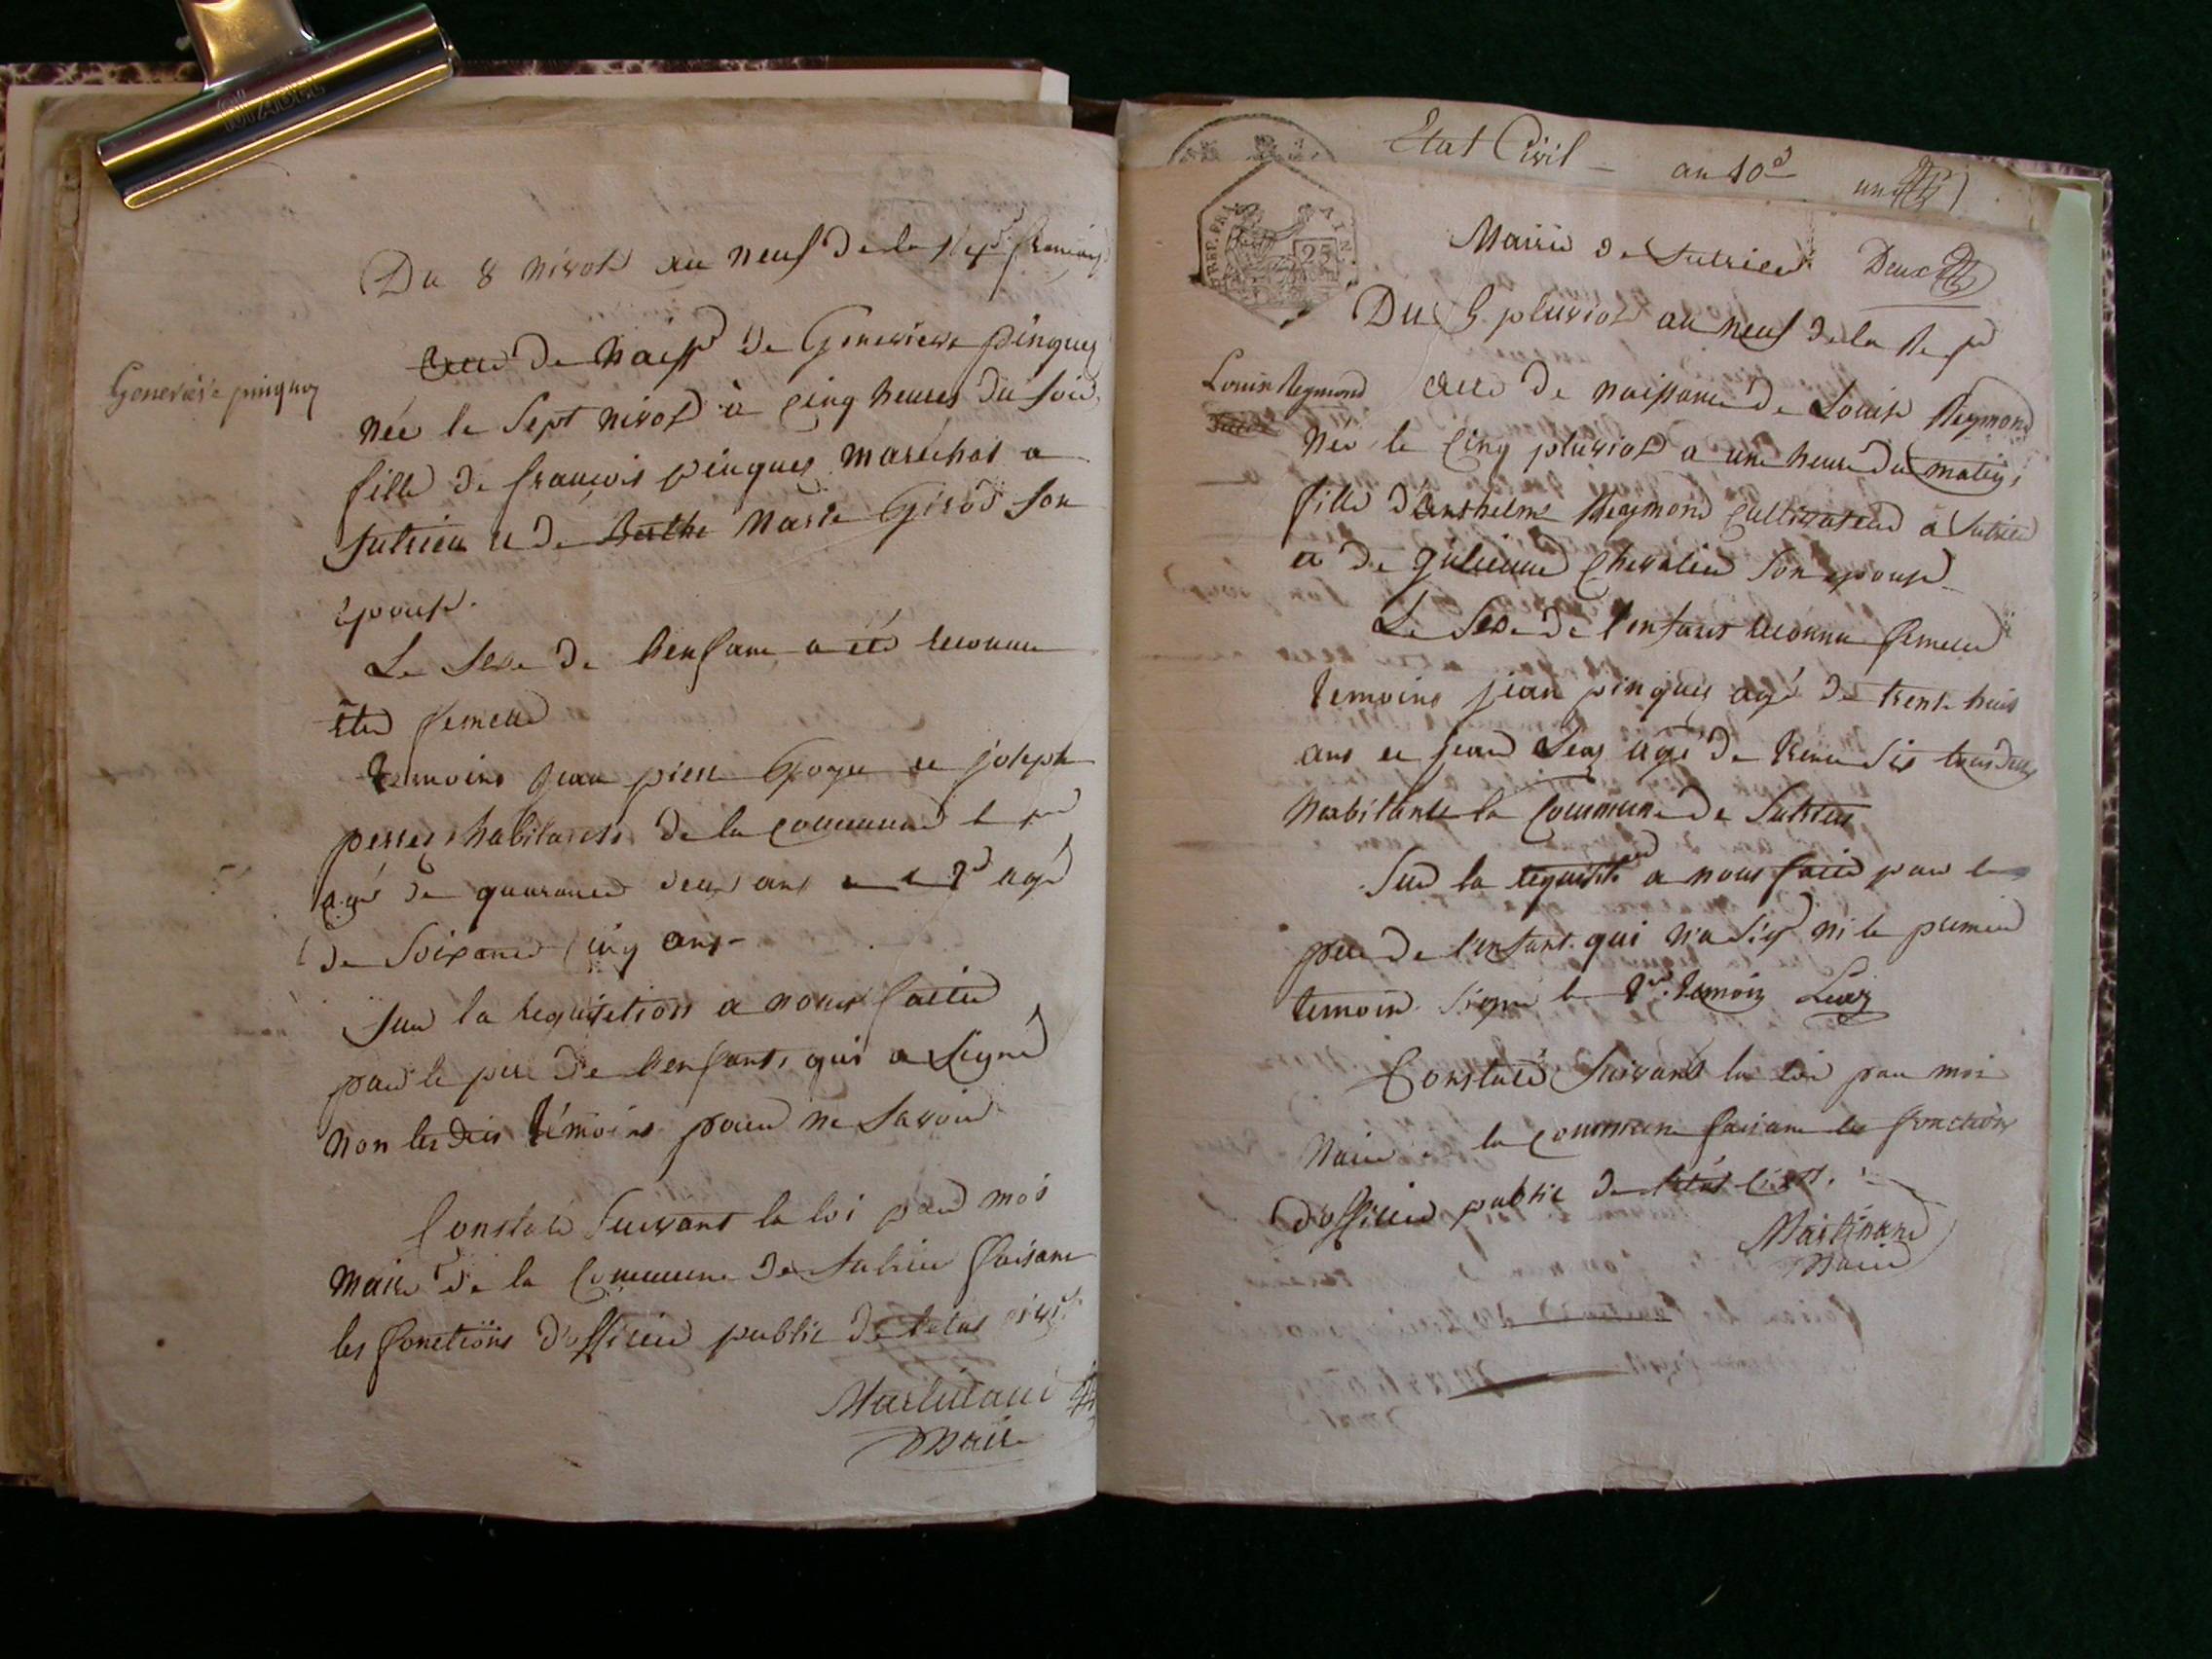 Du 8 nivose an neuf de la Rep. française
Genevieve pinguet
acte de naiss. de Genevieve pinguet
née le Sept nivose à cinq heures du soir,
fille de françois pinguet maréchal a
Sutrieu et de Berthe Marie Girod son
épouse.
Le Sexe de l'enfant a été reconnu
être femelle
temoins jean piere et joseph
perret habitants de la commune le pr
agé de quarante deux ans et le 2d agé
de Soixante cinq ans
Sur la requisition a nous faite
par le pere de l'enfant, qui a signé
non les dits témoins pour ne savoir
Constaté Suivant la loi par moi
maire de la Commune de Sutrieu faisant
les fonctions d'officier public de l'etat civil
Martinand
maire
Etat Civil – an 10e un
REP. FRA. 25
Mairie de Sutrieu Deux
Du 5 pluviose an neuf de la Rep
Louise Reymond
acte de naissance de Louise Reymond
née le cinq pluviose a une heure du matin,
fille d'anthelme Reymond Cultivateur a Sutrieu
et de julienne Chevalier Son epouse
Le Sexe de l'enfant reconnu femelle
temoins jean pinguet agé de trente huit
ans et jean agé de trente six tous deux
habitants la Commune de Sutrieu
Sur la requisit. a nous faite par le
pere de l'enfant qui n'a sig. ni le premier
temoin. Signé le 2d. temoin
Constaté Suivant la loi par moi
Maire la commune faisant les fonctions
d'officier public de l'état civil.
Martinand
Maire